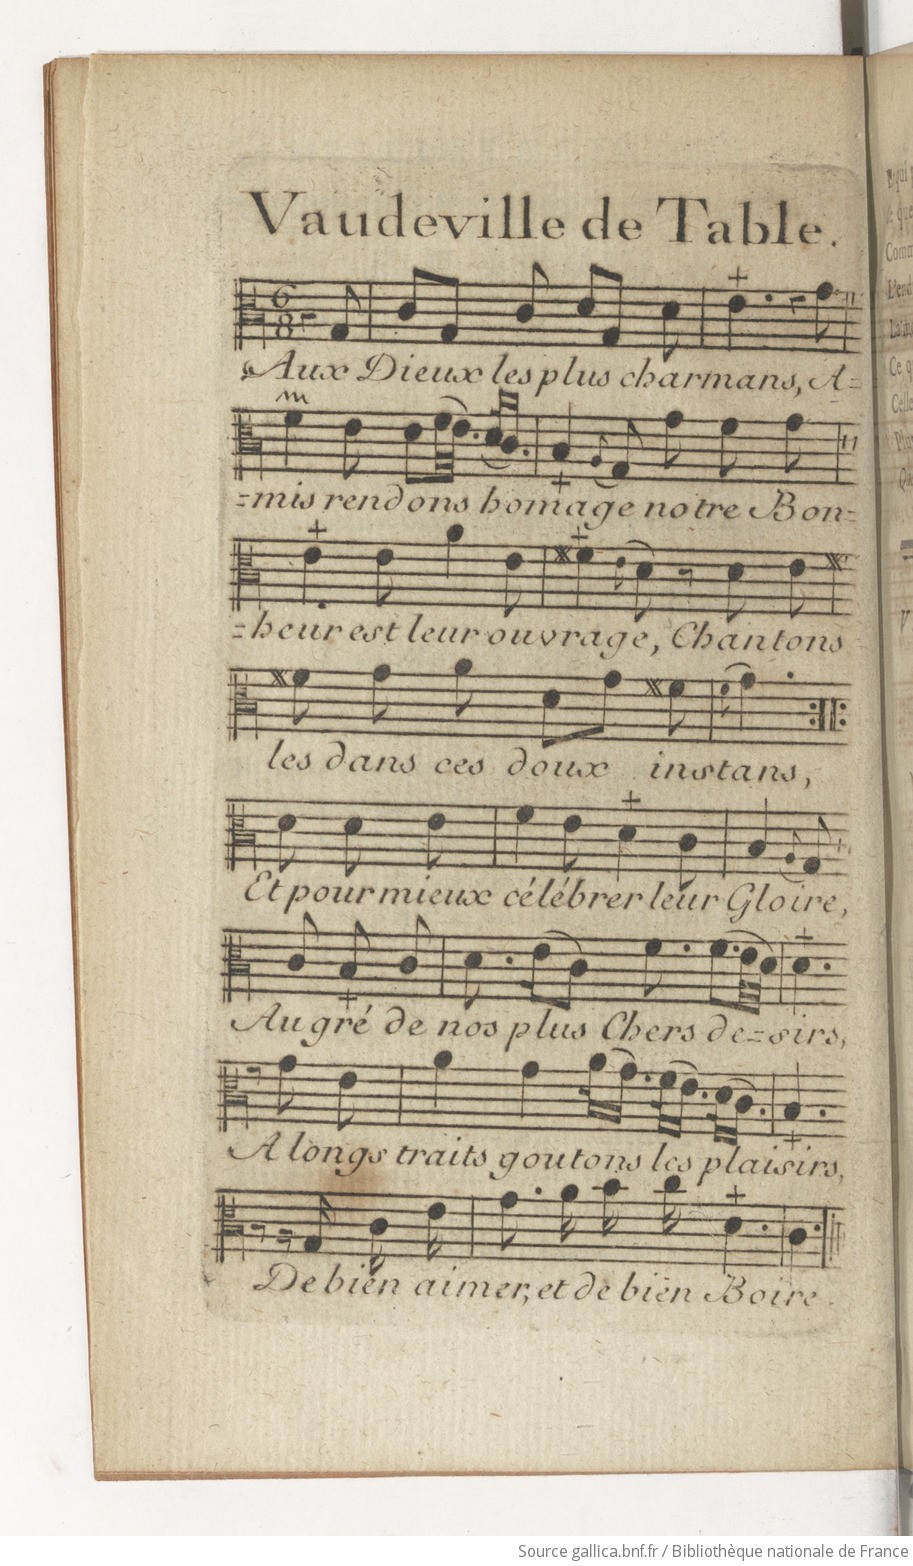 Vaudeville de Table.
6
8
Aux Dieux les plus charmans, A=
=mis rendons homage notre Bon=
=heur est leur ouvrage, Chantons
les dans ces doux instans,
Et pour mieux célébrer leur Gloire,
Au gré de nos plus Chers de=sirs,
A longs traits goutons les plaisirs,
De bien aimer, et de bien Boire.
Source gallica.bnf.fr / Bibliothèque nationale de France